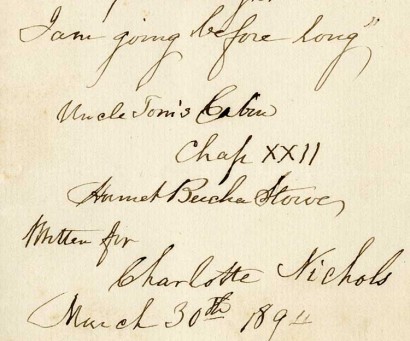 I am going before long"
Uncle Tom's Cabin
Chap XXII
Harriet Beecher Stowe
Written for
Charlotte Nichols
March 30th